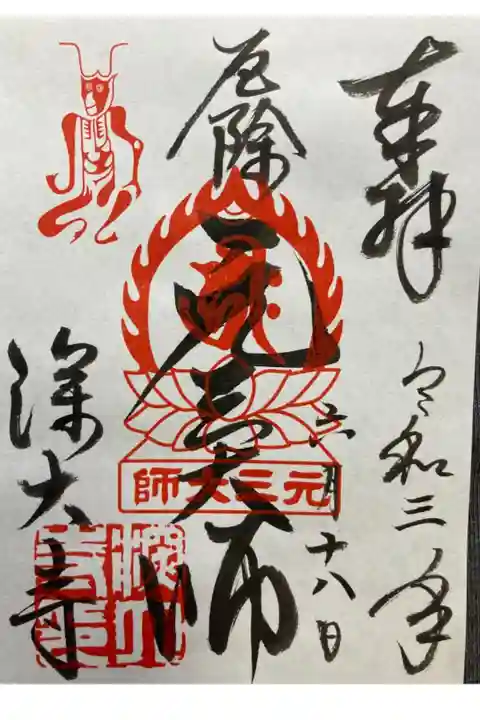 奉拝
令和三年
六月十八日
厄除
元三大師
師大三元
深大寺